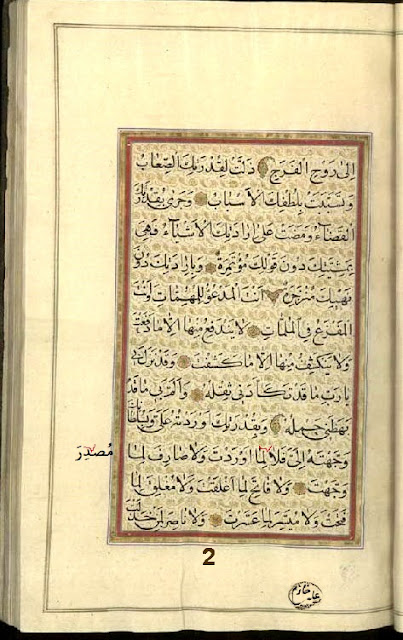 إلى روح الفرج ذلت لقدرتك الصعاب
وتسببت بلطفك الأسباب وجرى بقدرتك
القضاء ومضت على إرادتك الأشياء فهي
بمشيتك دون قولك مؤتمرة وبإرادتك دون
نهيك منزجرة أنت المدعو للمهمات وأنت
المفزع في الملمات لا يندفع منها إلا ما دفعت
ولا ينكشف منها إلا ما كشفت وقد نزل بي
يا رب ما قد تكأدني ثقله وألم بي ما قد
بهظني حمله وبقدرتك أوردته علي وبسلطانك
وجهته إلي فلا لما أوردت ولا صارف لما
مُصْدِرَ
وجهت ولا فاتح لما أغلقت ولا مغلق لما
فتحت ولا ميسر لما عسرت ولا ناصر لمن خذلت
2